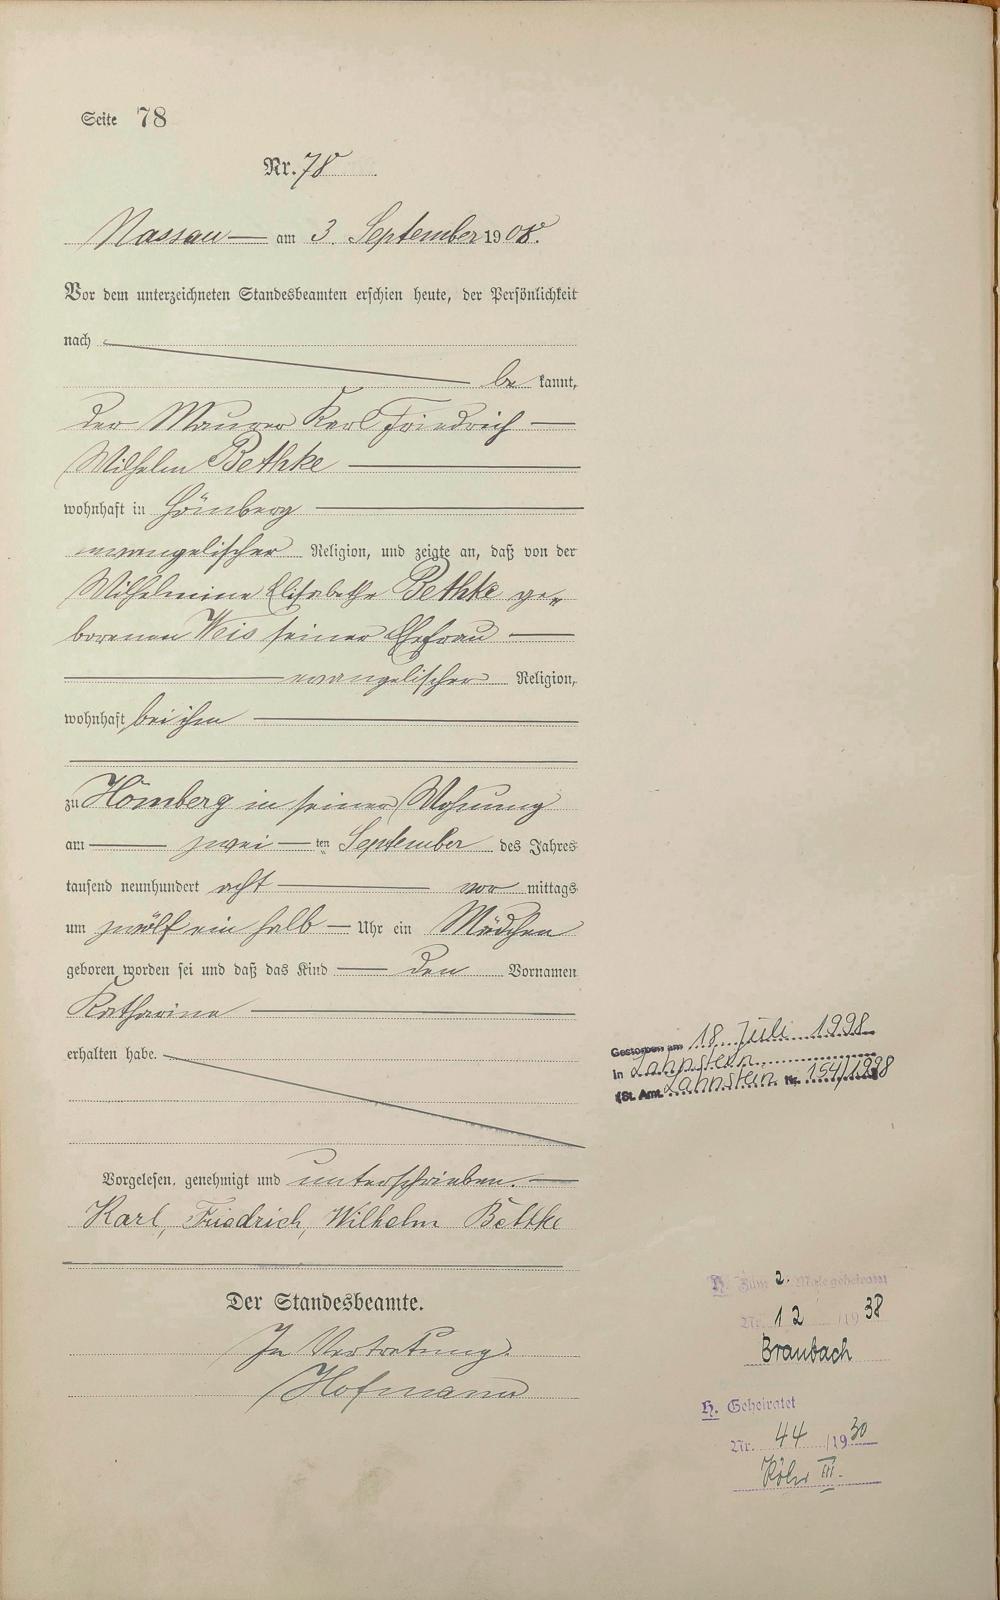 Seite 78
Nr. 78
Nassau am 3. September 1908.
Vor dem unterzeichneten Standesbeamten erschien heute, der Persönlichkeit
nach
be kannt,
der Maurer Karl Friedrich
Wilhelm Bethke
wohnhaft in Hömberg
evangelischer Religion, und zeigte an, daß von der
Wilhelmine Elisabethe Bethke ge-
borenen Weis seiner Ehefrau
evangelischer Religion,
wohnhaft bei ihm
zu Hömberg in seiner Wohnung
am zwei ten September des Jahres
tausend neunhundert acht vor mittags
um zwölf ein halb Uhr ein Mädchen
geboren worden sei und daß das Kind den Vornamen
Katharina
erhalten habe.
Gestorben am 18. Juli 1998
in Lahnstein
(St. Amt. Lahnstein Nr. 154/1998
Vorgelesen, genehmigt und unterschrieben.
Karl, Friedrich, Wilhelm Bethke
Der Standesbeamte.
In Vertretung.
Hofmann
H. Zum 2. Male geheiratet
Nr. 12 /19 38
Braubach
H. Geheiratet
Nr. 44 /19 30
Köln III.